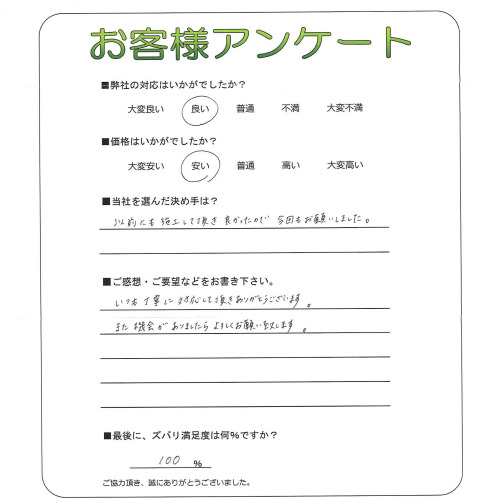 お客様アンケート
■弊社の対応はいかがでしたか？
大変良い 良い 普通 不満 大変不満
■価格はいかがでしたか？
大変安い 安い 普通 高い 大変高い
■当社を選んだ決め手は？
以前にも施工して頂き良かったので今回もお願いしました。
■ご感想・ご要望などをお書き下さい。
いつも丁寧に対応して頂きありがとうございます。
また機会がありましたらよろしくお願い致します。
■最後に、ズバリ満足度は何％ですか？
100 ％
ご協力頂き、誠にありがとうございました。